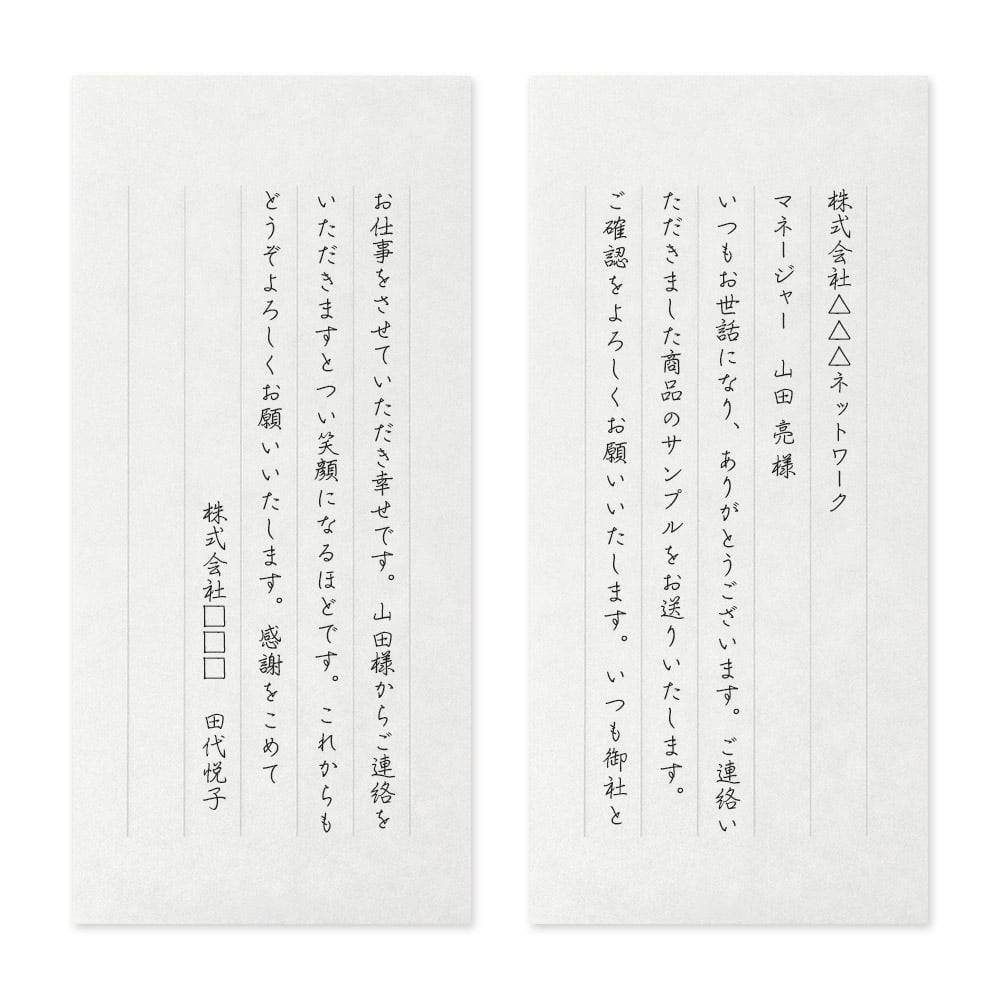 株式会社△△△ネットワーク
マネージャー　山田亮様
いつもお世話になり、ありがとうございます。ご連絡い
ただきました商品のサンプルをお送りいたします。
ご確認をよろしくお願いいたします。いつも御社と
お仕事をさせていただき幸せです。山田様からご連絡を
いただきますとつい笑顔になるほどです。これからも
どうぞよろしくお願いいたします。感謝をこめて
株式会社□□□　田代悦子